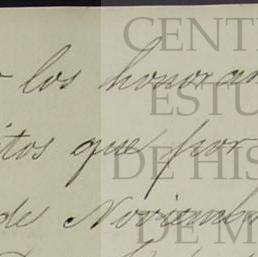 los honorar
itos que por
de Noviemb
CENT
ESTU
DE HIS
DE M